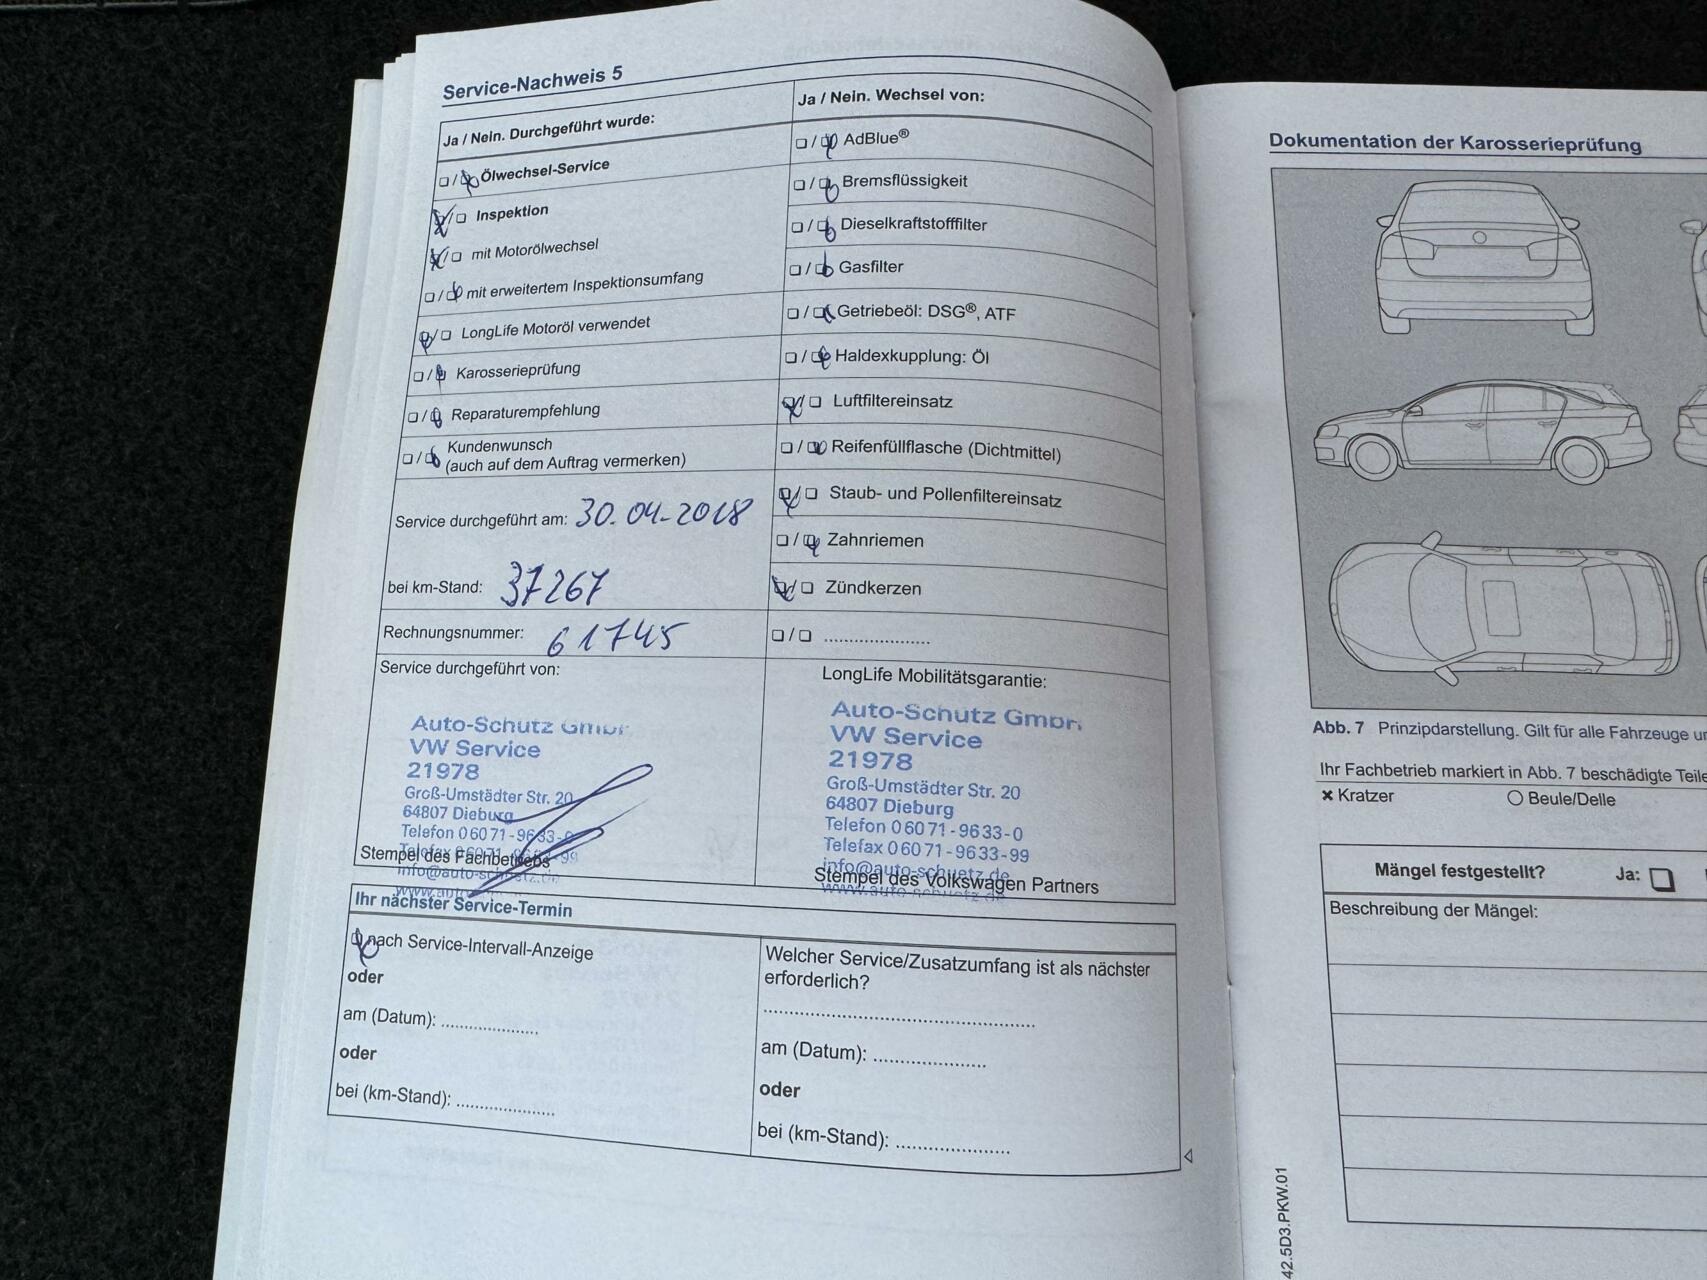 Service-Nachweis 5
Ja / Nein. Durchgeführt wurde:
☐ / ☒ Ölwechsel-Service
☒ / ☐ Inspektion
☒ / ☐ mit Motorölwechsel
☐ / ☒ mit erweitertem Inspektionsumfang
☒ / ☐ LongLife Motoröl verwendet
☐ / ☒ Karosserieprüfung
☐ / ☒ Reparaturempfehlung
☐ / ☒ Kundenwunsch
(auch auf dem Auftrag vermerken)
Service durchgeführt am: 30.04.2018
bei km-Stand: 37267
Rechnungsnummer: 61745
Service durchgeführt von:
Auto-Schütz GmbH
VW Service
21978
Groß-Umstädter Str. 20
64807 Dieburg
Telefon 06071-9633-0
Telefax 06071-9633-99
info@auto-schuetz.de
www.auto
Stempel des Fachbetriebs
Ja / Nein. Wechsel von:
☐ / ☒ AdBlue®
☐ / ☒ Bremsflüssigkeit
☐ / ☒ Dieselkraftstofffilter
☐ / ☒ Gasfilter
☐ / ☒ Getriebeöl: DSG®, ATF
☐ / ☒ Haldexkupplung: Öl
☒ / ☐ Luftfiltereinsatz
☐ / ☒ Reifenfüllflasche (Dichtmittel)
☒ / ☐ Staub- und Pollenfiltereinsatz
☐ / ☒ Zahnriemen
☒ / ☐ Zündkerzen
☐ / ☐ .....................
LongLife Mobilitätsgarantie:
Auto-Schütz GmbH
VW Service
21978
Groß-Umstädter Str. 20
64807 Dieburg
Telefon 06071-9633-0
Telefax 06071-9633-99
info@auto-schuetz.de
www.auto-schuetz.de
Stempel des Volkswagen Partners
Ihr nächster Service-Termin
☒ nach Service-Intervall-Anzeige
oder
am (Datum): ...................
oder
bei (km-Stand): ...................
Welcher Service/Zusatzumfang ist als nächster
erforderlich?
.....................................................
am (Datum): ......................
oder
bei (km-Stand): ......................
Dokumentation der Karosserieprüfung
Abb. 7 Prinzipdarstellung. Gilt für alle Fahrzeuge
Ihr Fachbetrieb markiert in Abb. 7 beschädigte Teile
× Kratzer
○ Beule/Delle
Mängel festgestellt? Ja: ☐
Beschreibung der Mängel:
42.5D3.PKW.01